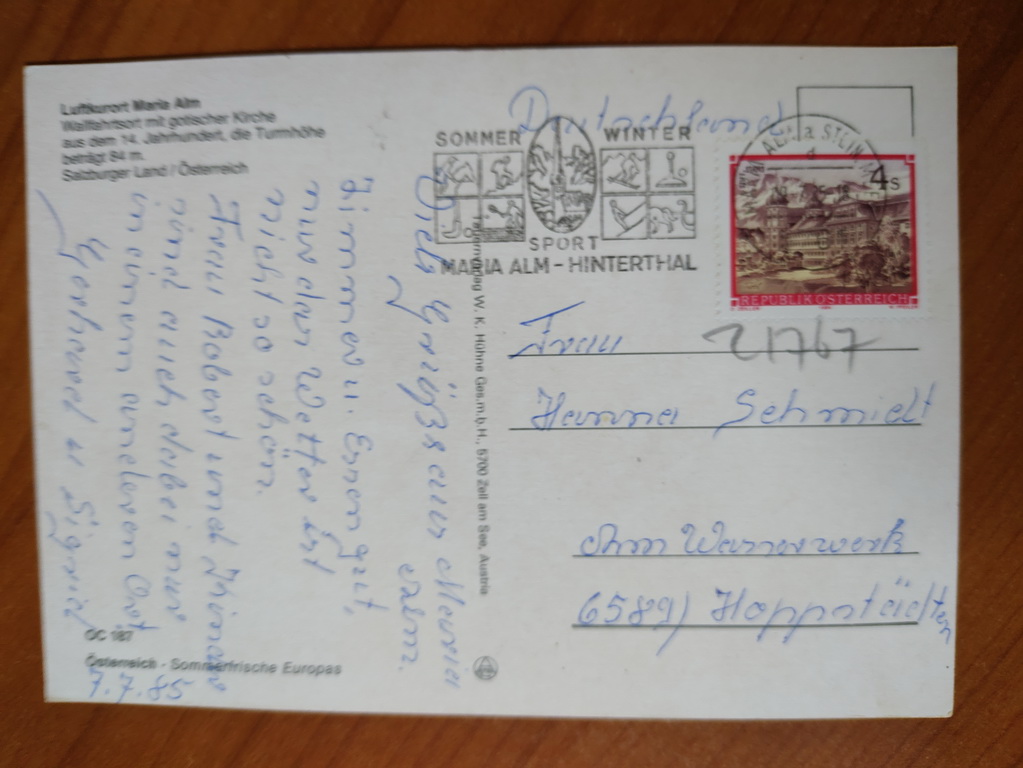 Luftkurort Maria Alm
Wallfahrtsort mit gotischer Kirche
aus dem 14. Jahrhundert, die Turmhöhe
beträgt 84 m.
Salzburger Land / Österreich
Viele Grüße aus Maria
Alm.
Zimmer u. Essen gut,
nur das Wetter ist
nicht so schön.
Frau Robert und
sind auch dabei nur
in einem anderen Ort
Gerhard u Sigrid
GC 187
Österreich - Sommerfrische Europas
7.7.85
W. K. Hühne Ges.m.b.H., 5700 Zell am See, Austria
Deutschland
SOMMER WINTER
SPORT
MARIA ALM - HINTERTHAL
4s
REPUBLIK ÖSTERREICH
21767
Frau
Hanna Schmidt
6589) Hoppstädten